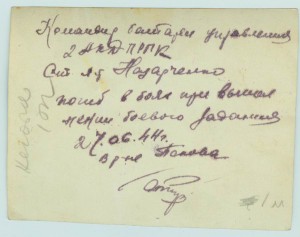 Командир батареи управления
2 АКД ПРГК
Назарченко
погиб в боях при выпол
нении боевого задания
27.06.44г.
в р-не